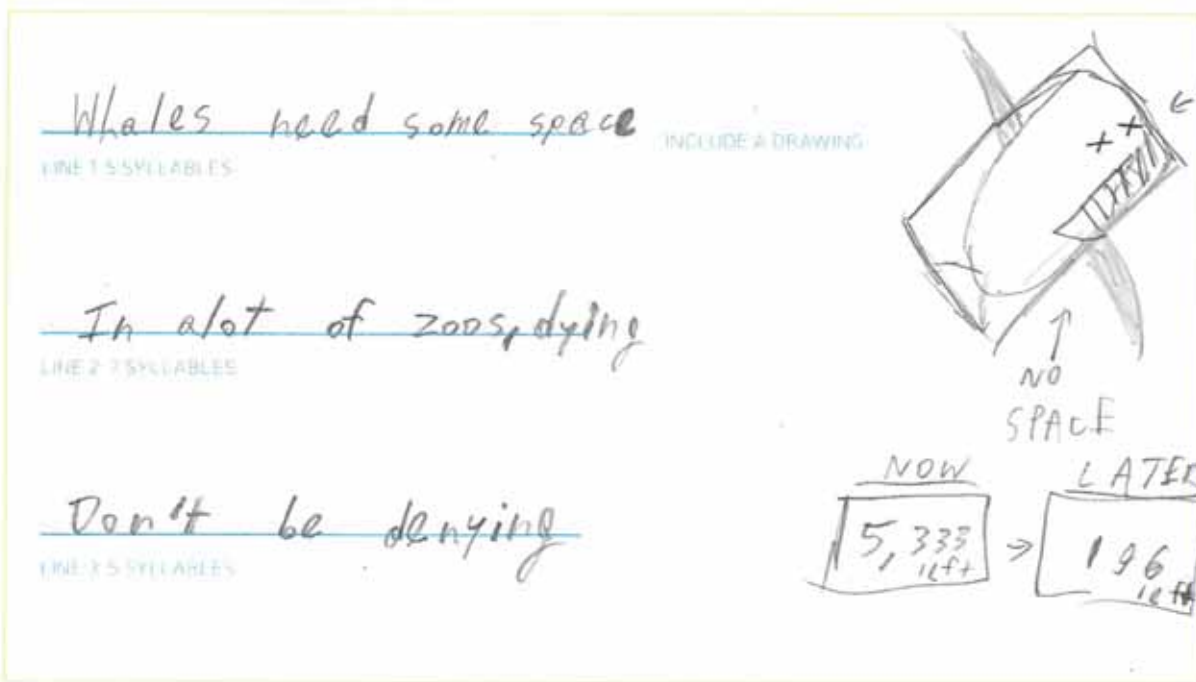 Whales need some space
LINE 1 5 SYLLABLES
INCLUDE A DRAWING
In alot of zoos, dying
LINE 2 7 SYLLABLES
Don't be denying
LINE 3 5 SYLLABLES
NO
SPACE
NOW
5,333
left
LATER
196
left